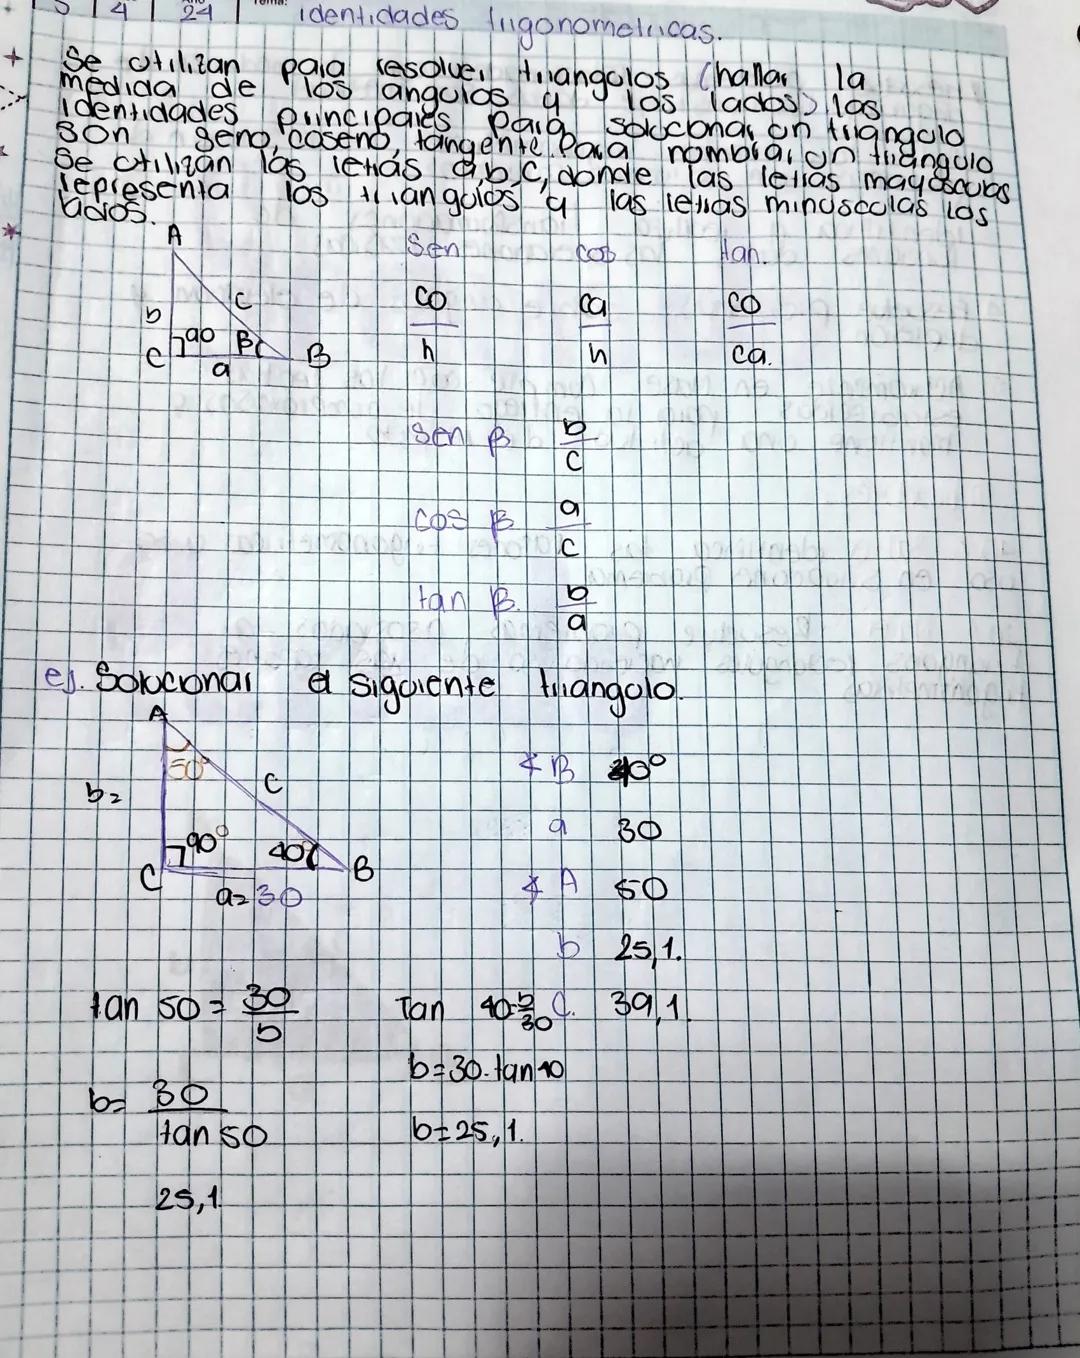 5 4 24 Tema: identidades trigonometricas.
Se utilizan para resolver triangulos (hallar la
medida de los angulos y los lados) las
identidades principales para soluconar un triangulo
son seno, coseno, tangente. Para nombrar un triangulo
se utilizan las letras a,b,c, donde las letras mayosculas
representa los triangulos y las letras minusculas los
lados.
A
Sen cos tan.
b c
co ca co
h h ca.
C 90 B B
a
sen β b
c
cos β a
c
tan β. b
a
ej. Soluconar el siguiente triangulo.
A
50°
∡ B 40°
b= c
a 30
90° 40
C B
a=30
∡ A 50
b 25,1.
C. 39,1.
tan 50 = 30
b
b= 30
tan 50
25,1.
Tan 40=b
30
b=30.tan 40
b=25,1.